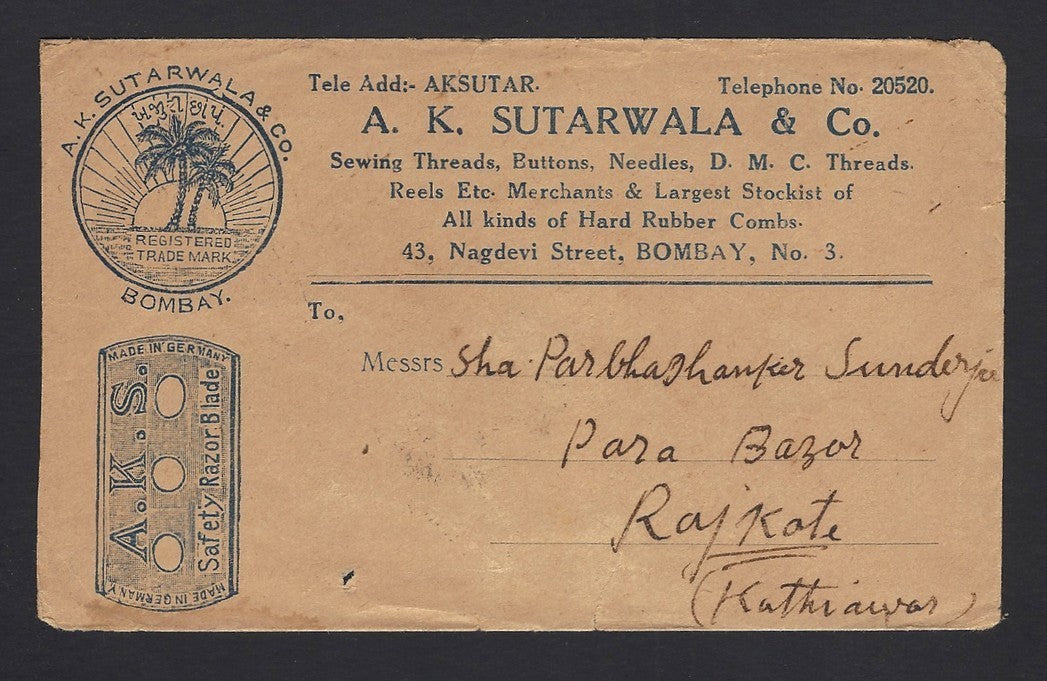 A. K. SUTARWALA & CO.
ખજુરી છાપ.
REGISTERED
TRADE MARK
BOMBAY.
Tele Add:- AKSUTAR.
Telephone No. 20520.
A. K. SUTARWALA & Co.
Sewing Threads, Buttons, Needles, D. M. C. Threads.
Reels Etc. Merchants & Largest Stockist of
All kinds of Hard Rubber Combs.
43, Nagdevi Street, BOMBAY, No. 3.
To,
Messrs Sha. Parbhashanker Sunderjee
Para Bazar
Rajkote
(Kathiawar)
MADE IN GERMANY
A. K. S.
Safety Razor Blade
MADE IN GERMANY